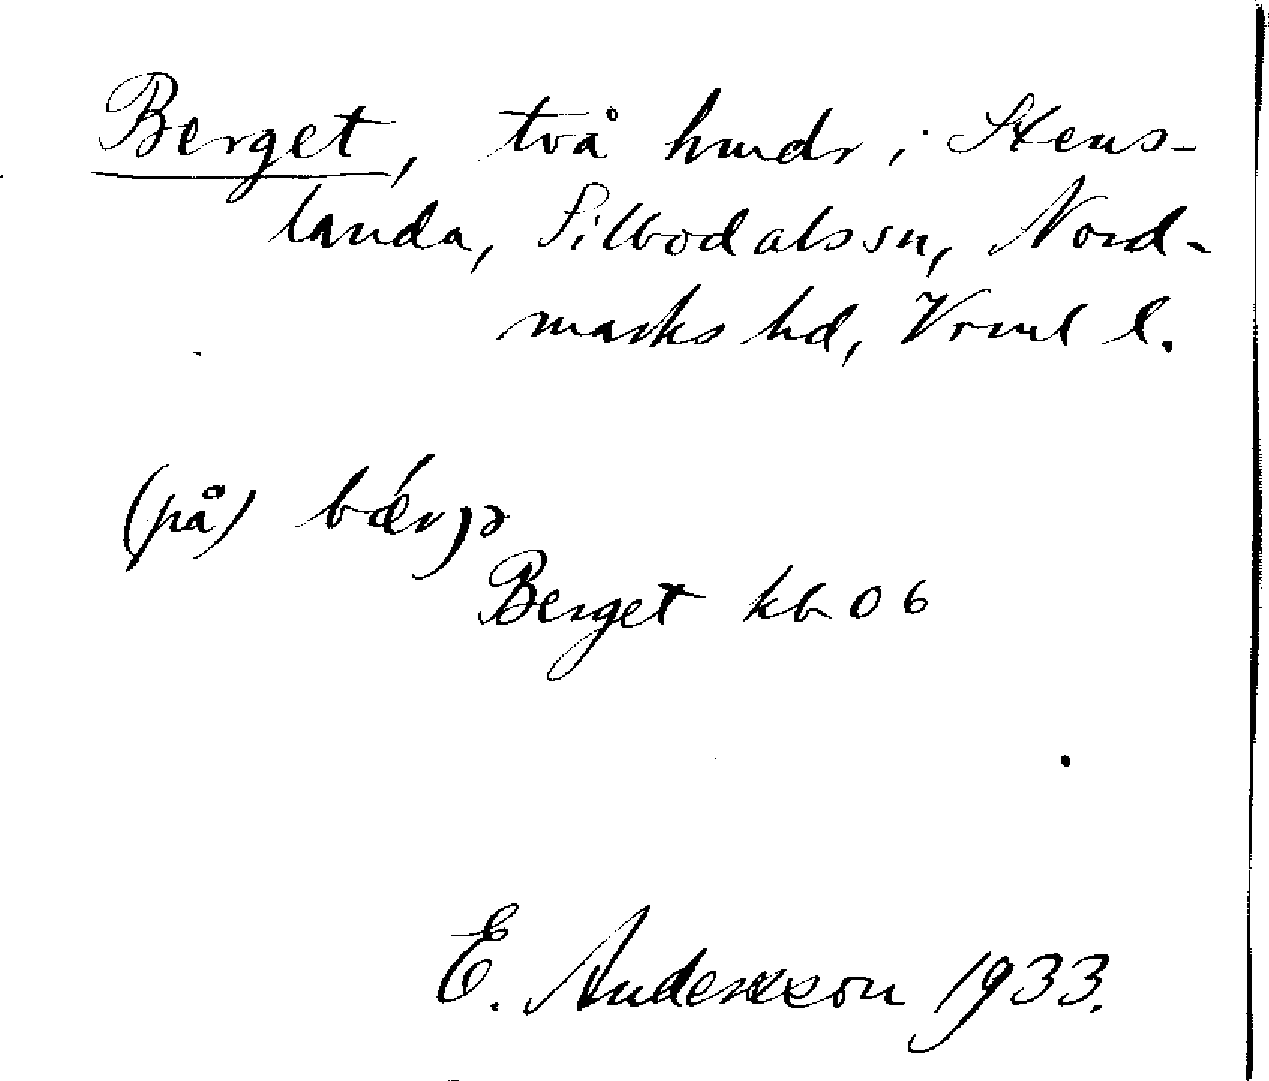 Berget, två hmdr i Stens-
landa, Silbodals sn, Nord-
marks hd, Vrml l.
(på) bǽrjə
Berget kb 06
E. Andersson 1933.